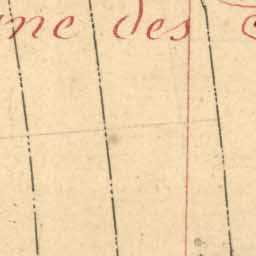 ne des